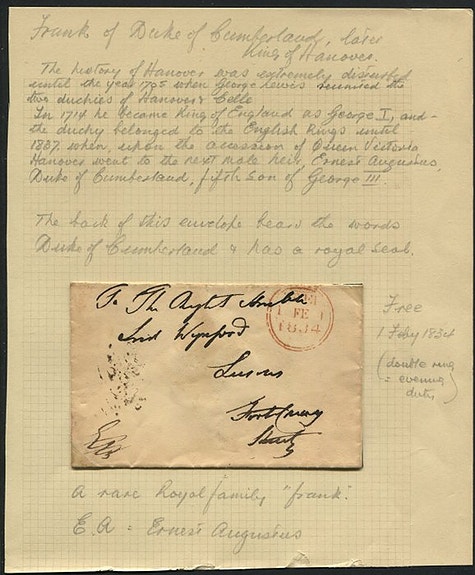 Frank of Duke of Cumberland, later
King of Hanover.
The history of Hanover was extremely disturbed
until the year 1705 when George Lewis reunited the
two duchies of Hanover & Celle
In 1714 he became King of England as George I, and
the duchy belonged to the English Kings until
1837, when, upon the accession of Queen Victoria
Hanover went to the next male heir, Ernest Augustus,
Duke of Cumberland, fifth son of George III.
The back of this envelope bears the words
Duke of Cumberland & has a royal seal.
To The Right Honble
Lord Wynford
1 FE 1
1834
Free
1 Feby 1834
(double ring
= evening
duty)
EA
A rare Royal family "frank".
E.A = Ernest Augustus